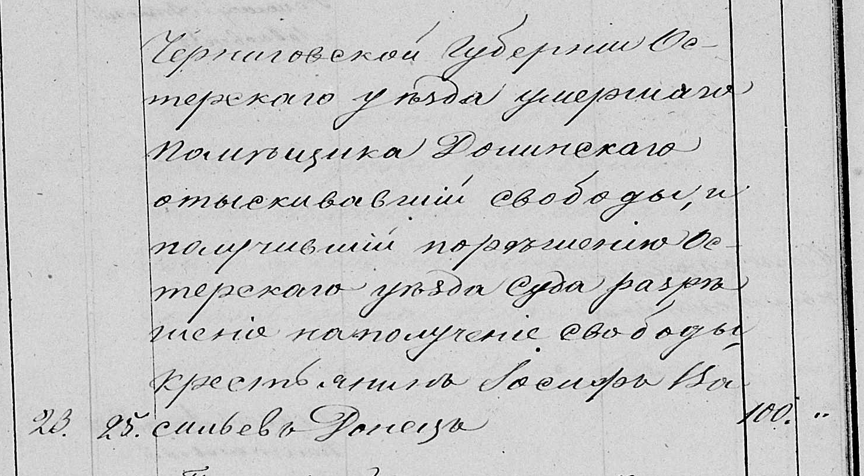 Черниговской Губерніи Ос-
терскаго уѣзда умершаго
помѣщика Долинскаго
отыскивавшій свободы, и
получившій порѣшенію Ос-
терскаго уѣзда Суда разрѣ
шеніе наполученіе свободы,
крестьянинъ Іосифъ Ва
23. 25. сильевъ Донецъ 100. "